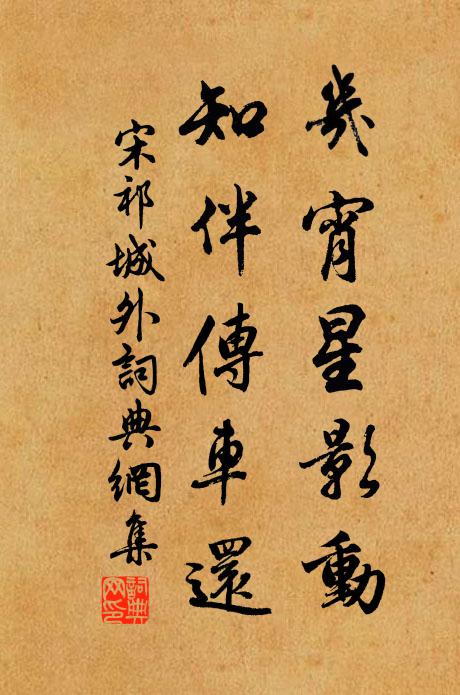 幾宵星影動
知伴傳車還
宋祁城外詞典網集
詞典網印